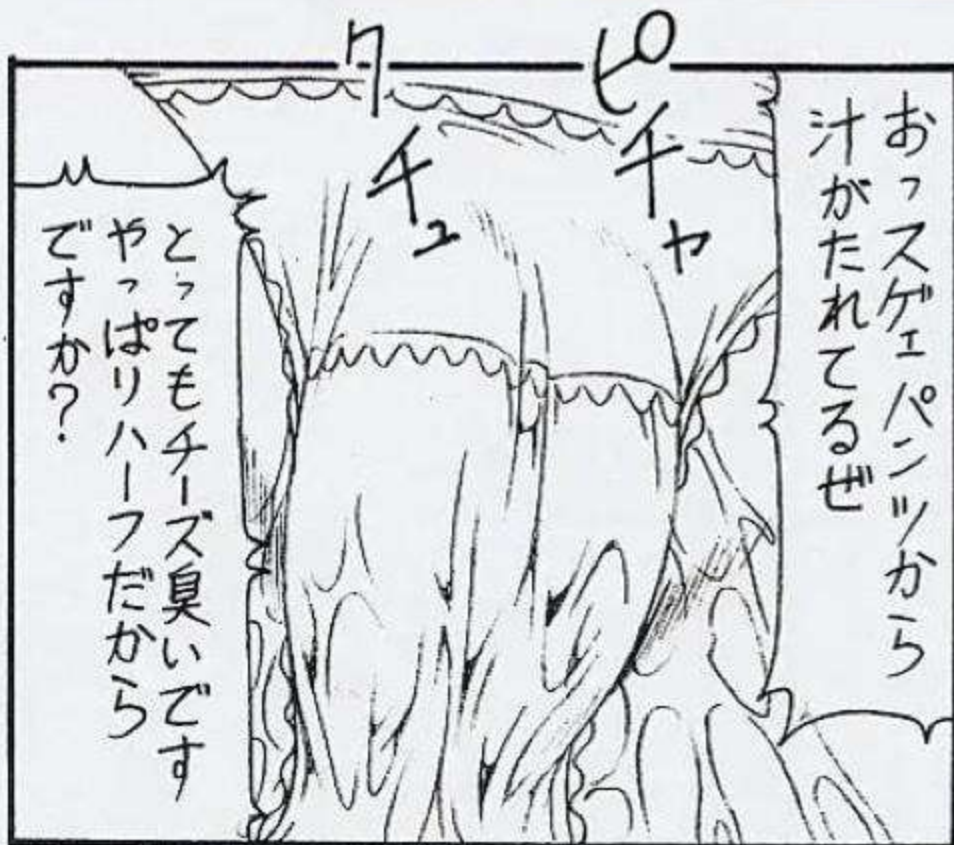 おっスゲェパンツから
汁がたれてるぜ
ピチャ
クチュ
とってもチーズ臭いです
やっぱりハーフだから
ですか?